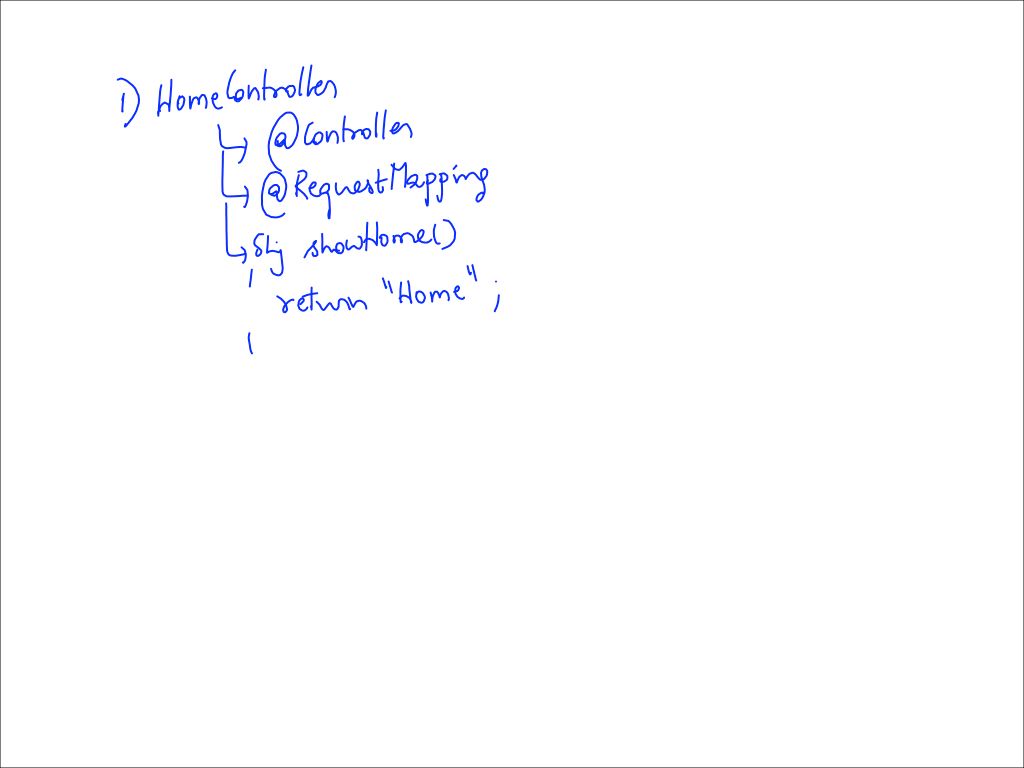 1) HomeController
@Controller
@RequestMapping
showHome()
return "Home" ;